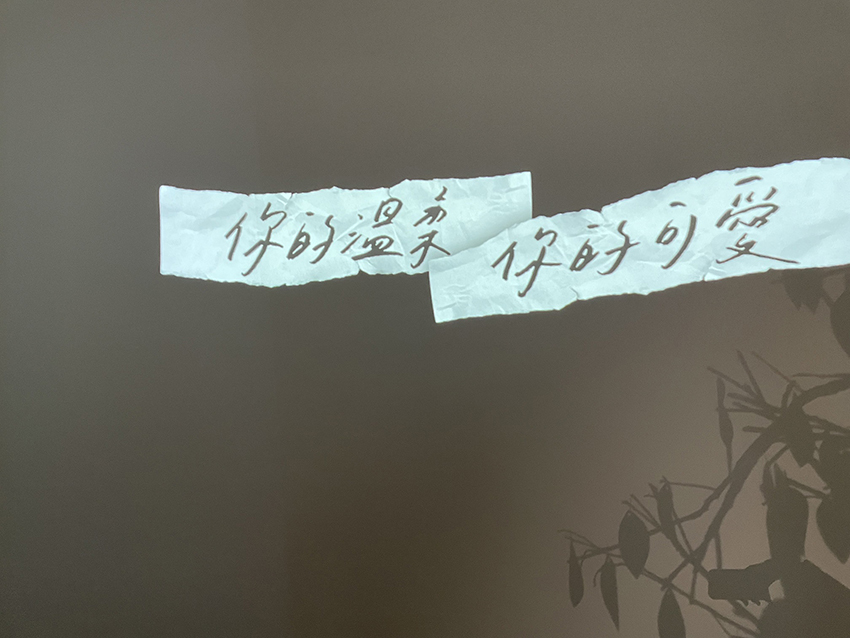 你的溫柔
你的可愛